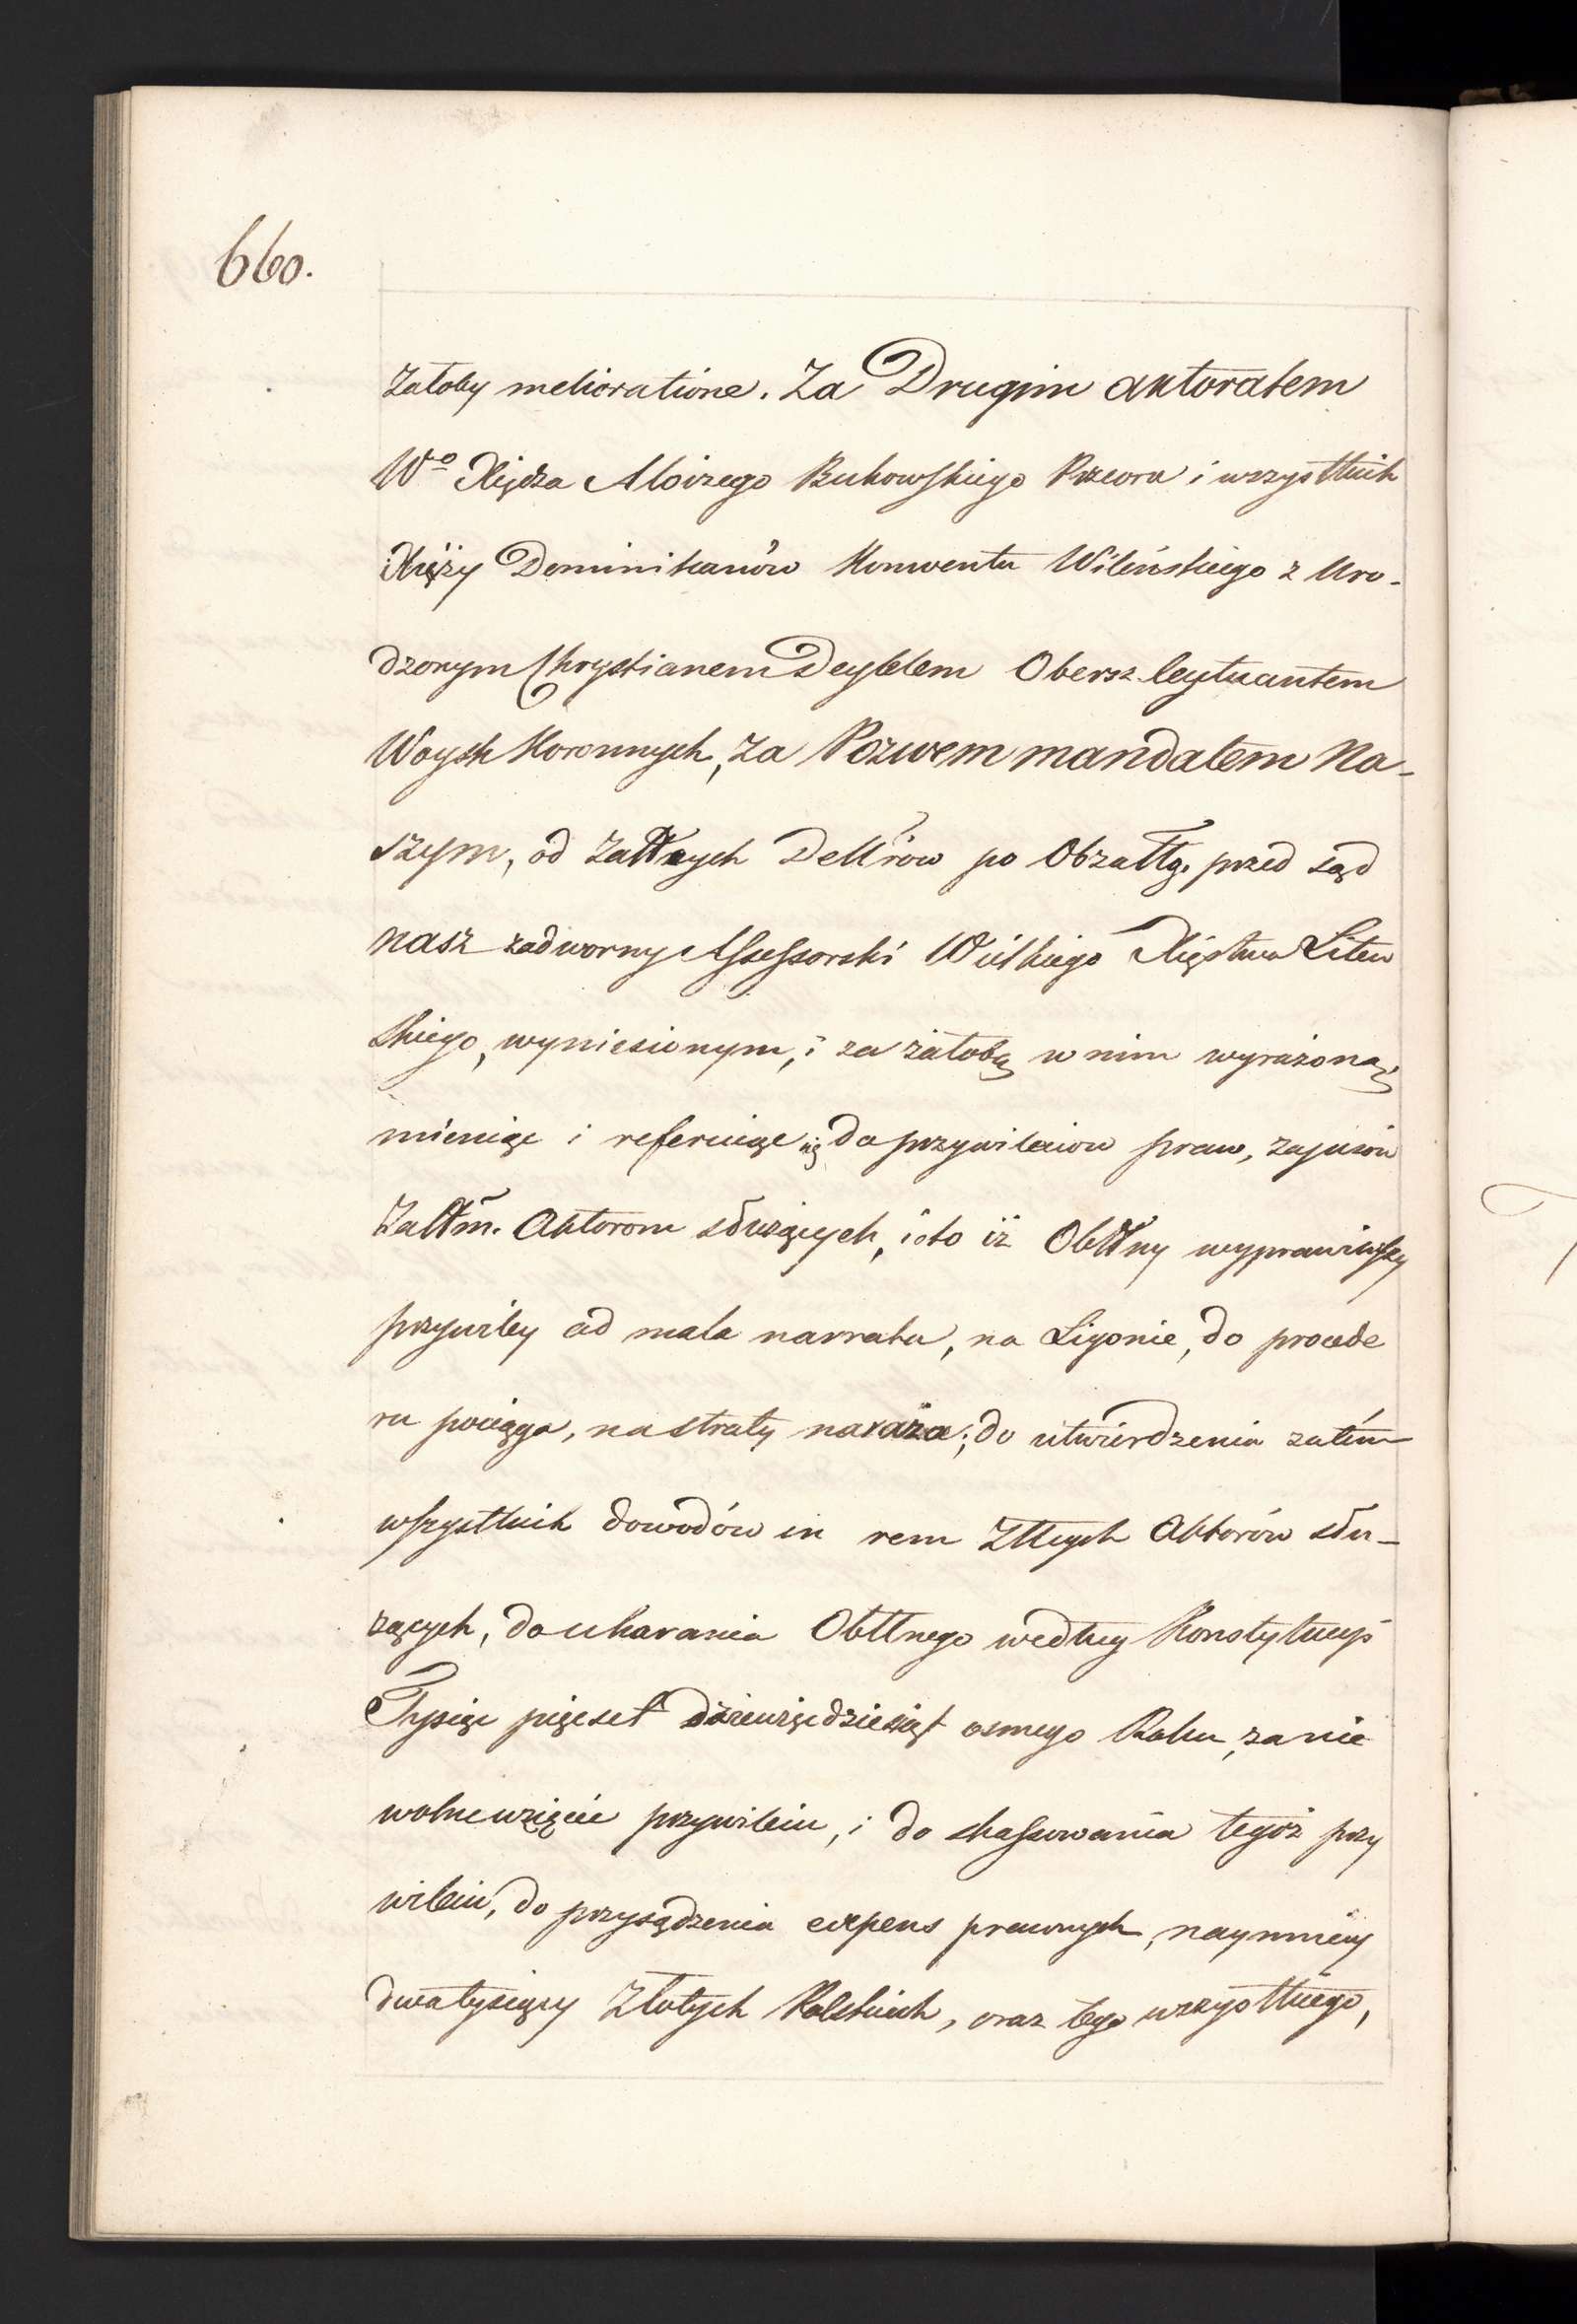 660.
żałoby melioratione. Za Drugim aktoratem
Wº Xiędza Aloizego Bukowskiego Przeora i wszystkich
Xięży Dominikanów Konwentu Wileńskiego z Uro-
dzonym Chrystianem Deyblem Obersz leytnantem
Woysk Koronnych, za Pozwem mandatem Na-
szym, od żałłnych Dellrów po Obżałłg. przed sąd
nasz zadworny Assessorski Wielkiego Xięstwa Litew
skiego, wyniesionym, i za żałobą w nim wyrażoną,
mieniąc i referuiąc się do przywileiow praw, zapisów
żałłm. Aktorom służących, i o to iż Obłłny wyprawiwszy
przywiley ad mala narrata, na Ligonie, do procede
ru pociąga, na straty naraża; do utwierdzenia zatém
wszystkich dowodów in rem żłłych Aktorów słu-
żących, do ukarania Obłłnego według Konstytucyi
Tysiąc pięćset dziewięćdziesiąt osmego Roku, za nie
wolne wzięcie przywileiu, i do skassowania tegoż przy
wileiu, do przysądzenia expens prawnych, naymniey
dwatysięcy Złotych Polskich, oraz tego wszystkiego,